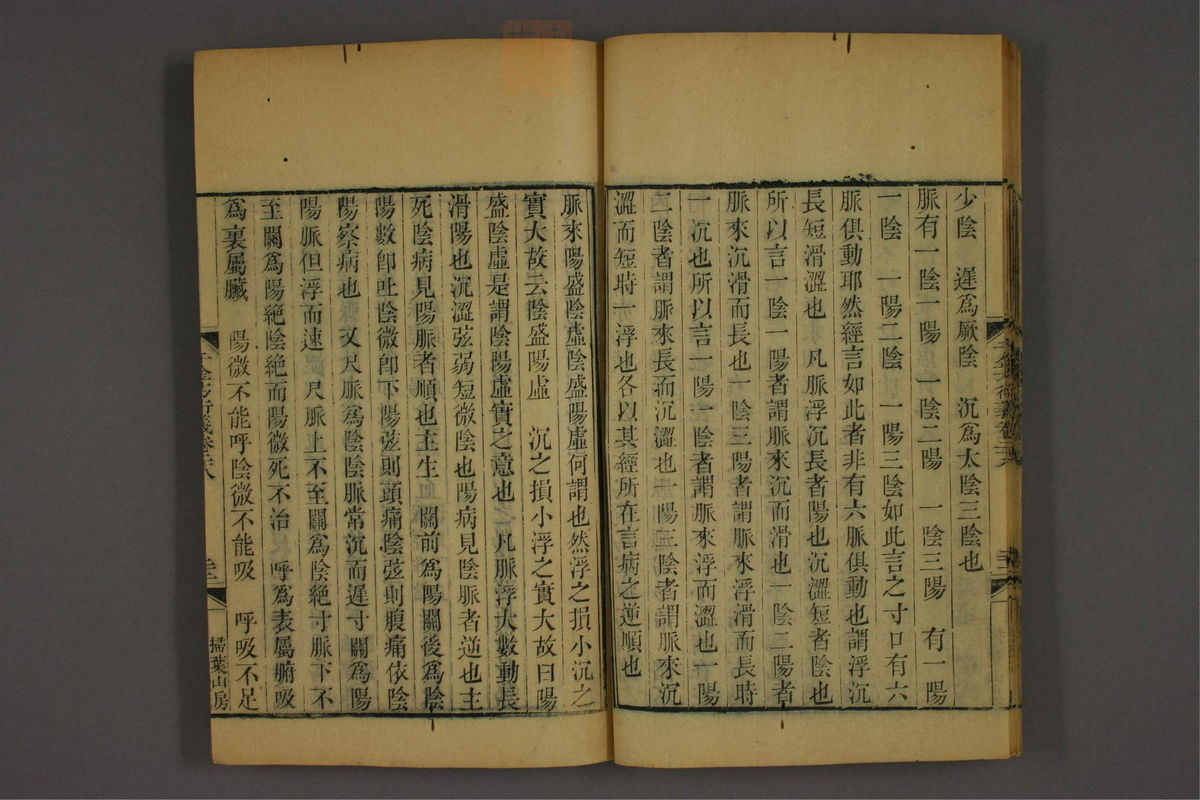 少陰　遲爲厥陰　沉爲太陰三陰也
脈有一陰一陽　一陰二陽　一陰三陽　有一陽
一陰　一陽二陰　一陽三陰如此言之寸口有六
脈俱動耶然經言如此者非有六脈俱動也謂浮沉
長短滑澀也　凡脈浮沉長者陽也沉澀短者陰也
所以言一陰一陽者謂脈來沉而滑也一陰二陽者
脈來沉滑而長也一陰三陽者謂脈來浮滑而長時
一沉也所以言一陽一陰者謂脈來浮而澀也一陽
二陰者謂脈來長而沉澀也一陽三陰者謂脈來沉
澀而短時一浮也各以其經所在言病之逆順也
脈來陽盛陰虛陰盛陽虛何謂也然浮之損小沉之
實大故云陰盛陽虛　沉之損小浮之實大故曰陽
盛陰虛是謂陰陽虛實之意也　凡脈浮大數動長
滑陽也沉澀弦弱短微陰也陽病見陰脈者逆也主
死陰病見陽脈者順也主生　關前爲陽關後爲陰
陽數卽吐陰微卽下陽弦則頭痛陰弦則腹痛依陰
陽察病也　又尺脈爲陰陰脈常沉而遲寸關爲陽
陽脈但浮而速　尺脈上不至關爲陰絕寸脈下不
至關爲陽絕陰絕而陽微死不治　呼爲表屬腑吸
爲裏屬臟　陽微不能呼陰微不能吸　呼吸不足
千金方衍義卷二十八
掃葉山房